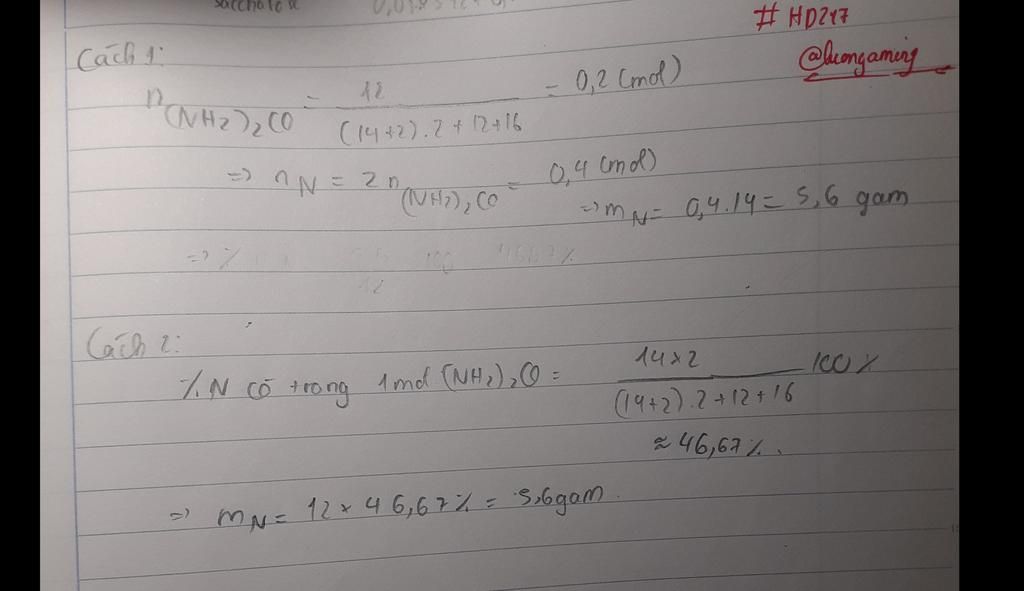 saccharozơ
# HD217
Cách 1:
n(NH2)2CO = 12 / (14+2).2+12+16 = 0,2 (mol)
=> nN = 2n(NH2)2CO = 0,4 (mol)
=> mN = 0,4.14 = 5,6 gam
=> % 100 46,67%
12
Cách 2:
% N có trong 1mol (NH2)2CO = 14×2 / (14+2).2+12+16 100%
≈ 46,67%.
=> mN = 12 × 46,67% = 5,6gam.